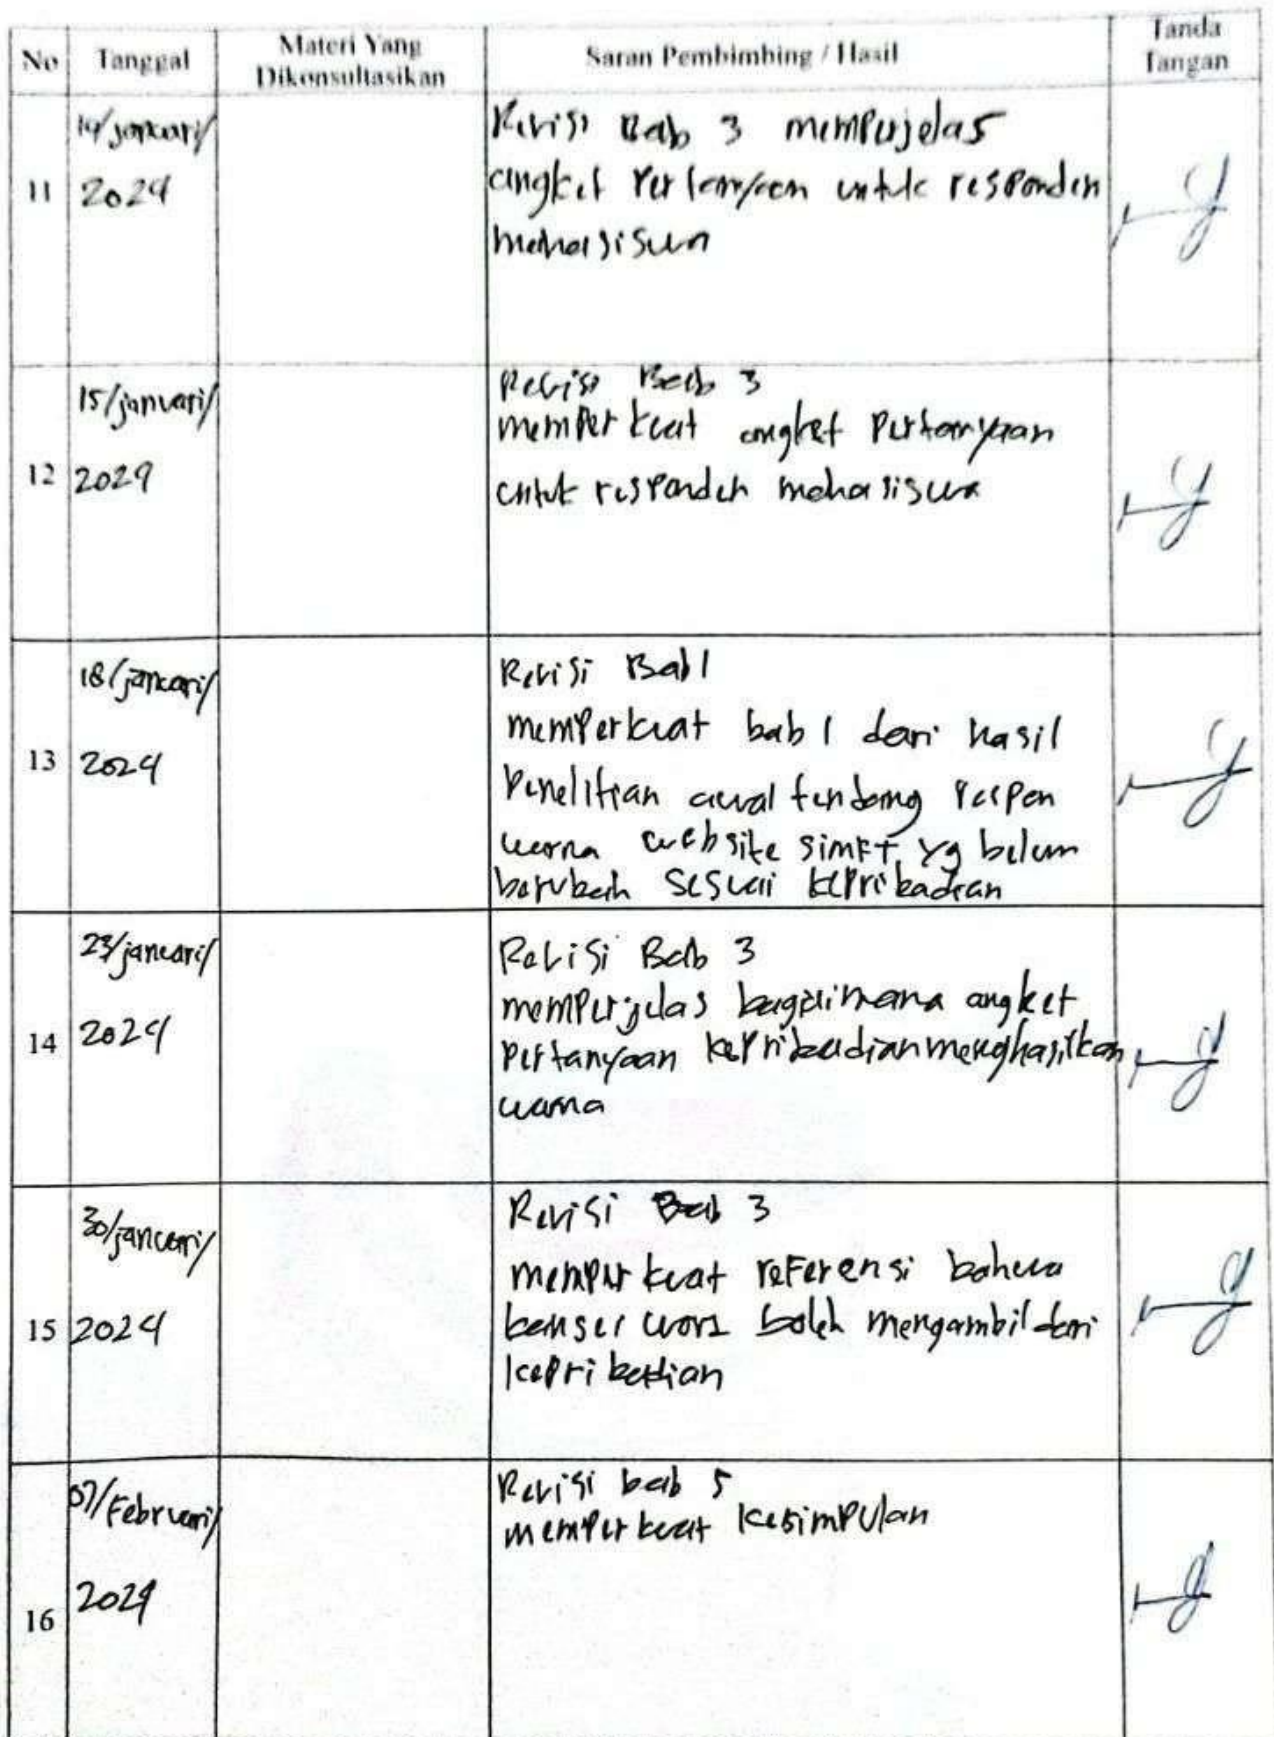 No Tanggal Materi Yang Dikonsultasikan Saran Pembimbing / Hasil Tanda Tangan
11
14/januari/
2024
Revisi Bab 3 memperjelas
angket pertanyaan untuk responden
mahasiswa
12
15/januari/
2024
Revisi Bab 3
memperkuat angket Pertanyaan
untuk responden mahasiswa
13
18/januari/
2024
Revisi Bab 1
memperkuat bab 1 dari hasil
Penelitian awal tentang respon
warna website simft yg belum
berubah sesuai kepribadian
14
23/januari/
2024
Revisi Bab 3
memperjelas bagaimana angket
pertanyaan kepribadian menghasilkan
warna
15
30/januari/
2024
Revisi Bab 3
memperkuat referensi bahwa
boleh mengambil dari
kepribadian
16
07/Februari/
2024
Revisi bab 5
memperkuat Kesimpulan